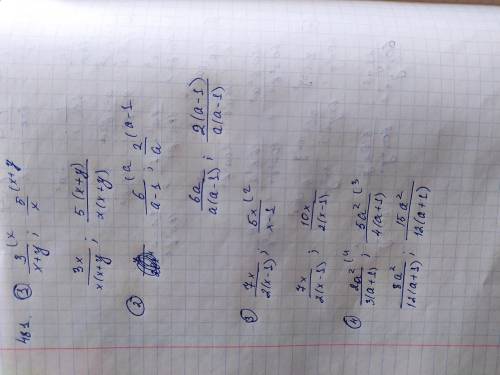 481. ① 3/(x+y) (x ; 5/x (x+y
3x/(x(x+y) ; 5(x+y)/(x(x+y))
② 6/(a-1) (a ; 2/a (a-1
6a/(a(a-1)) ; 2(a-1)/(a(a-1))
③ 7x/(2(x-1)) ; 5x/(x-1) (2
7x/(2(x-1)) ; 10x/(2(x-1))
④ 2a²/(3(a+1)) (4 ; 5a²/(4(a+1)) (3
8a²/(12(a+1)) ; 15a²/(12(a+1))